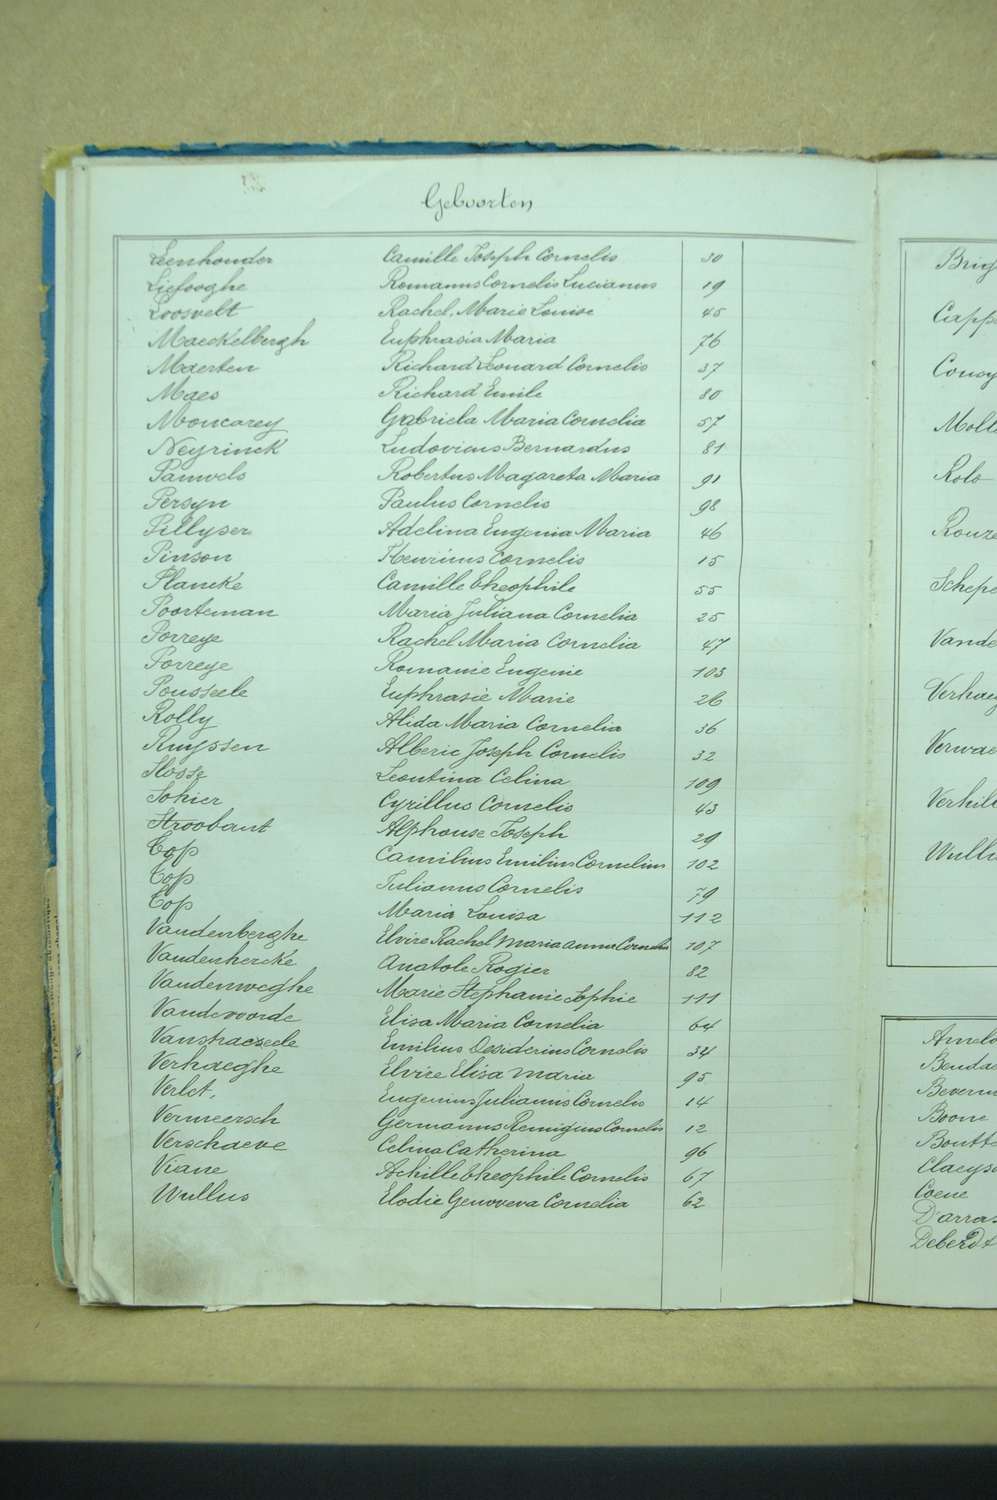 Geboorten
Leenhouder Camille Joseph Cornelis 30
Liefooghe Romanus Cornelis Lucianus 19
Loosvelt Rachel Marie Louise 45
Maeckelbergh Euphrasia Maria 76
Maerten Richard Leonard Cornelis 37
Maes Richard Emile 80
Moncarey Gabriela Maria Cornelia 57
Neyrinck Ludovicus Bernardus 81
Pauwels Robertus Magareta Maria 91
Persyn Paulus Cornelis 98
Pillyser Adelina Eugenia Maria 46
Pinson Henricus Cornelis 15
Plancke Camille Theophile 55
Poorteman Maria Juliana Cornelia 25
Porreye Rachel Maria Cornelia 47
Porreye Romanie Eugenie 103
Pousseele Euphrasie Marie 26
Rolly Alida Maria Cornelia 36
Ruyssen Alberic Joseph Cornelis 32
Slosse Leontina Celina 109
Sohier Cyrillus Cornelis 43
Stroobant Alphonse Joseph 29
Top Camilius Emilius Cornelius 102
Top Julianus Cornelis 79
Top Maria Louisa 112
Vandenberghe Elvire Rachel Maria Anna Cornelia 107
Vandenhercke Anatole Rogier 82
Vandenweghe Marie Stephanie Sophie 111
Vandevoorde Elisa Maria Cornelia 64
Vanstraeseele Emilius Desiderius Cornelis 34
Verhaeghe Elvire Elisa Maria 95
Verlet, Eugenius Julianus Cornelis 14
Vermeersch Germanus Remigius Cornelis 12
Verschaeve Celina Catherina 96
Viane Achille Theophile Cornelis 67
Wullus Elodie Genoveva Cornelia 62
Brig
Capp
Coucy
Molle
Rolo
Rouze
Schepe
Vande
Verhaeg
Verwae
Verhil
Wullu
Amelo
Benda
Bevern
Boone
Boutte
Claeys
Coene
D'arras
Deberdt